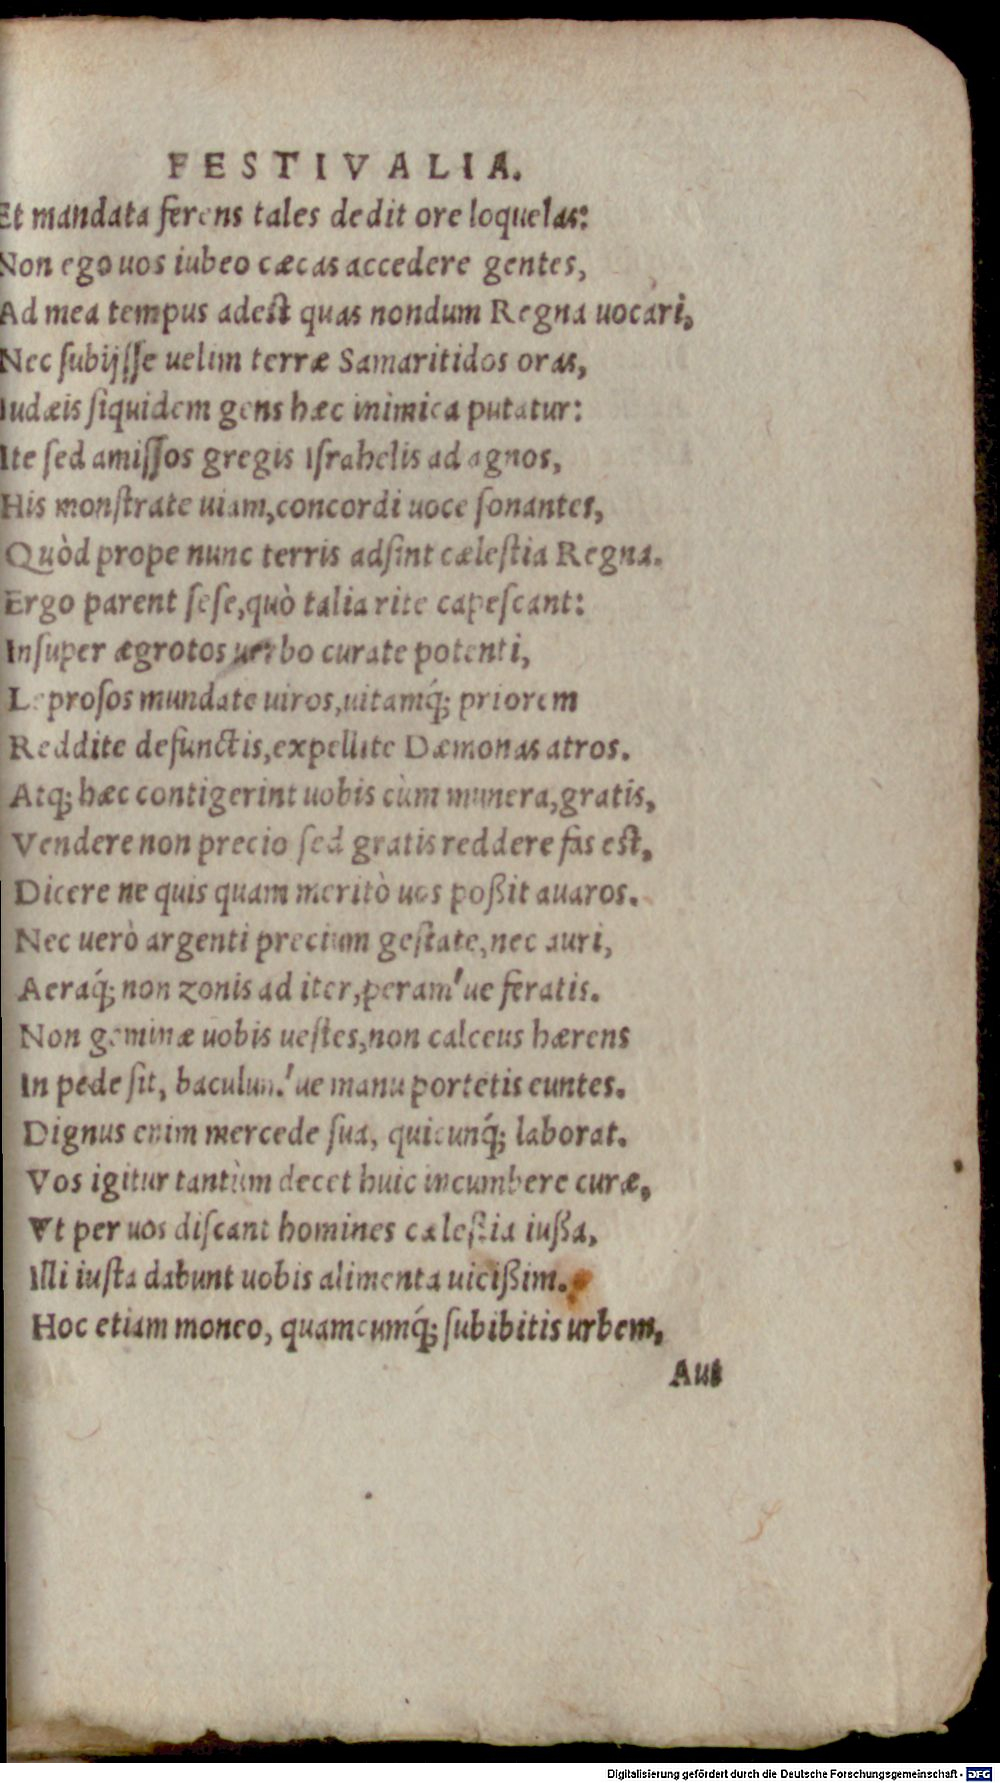 FESTIVALIA.
Et mandata ferens tales dedit ore loquelas:
Non ego uos iubeo cæcas accedere gentes,
Ad mea tempus adest quas nondum Regna uocari,
Nec subijſſe uelim terræ Samaritidos oras,
Iudæis ſiquidem gens hæc inimica putatur:
Ite ſed amiſſos gregis Iſrahelis ad agnos,
His monſtrate uiam,concordi uoce ſonantes,
Quòd prope nunc terris adſint cæleſtia Regna.
Ergo parent ſeſe,quò talia rite capeſcant:
Inſuper ægrotos uerbo curate potenti,
Leproſos mundate uiros,uitamq́; priorem
Reddite defunctis,expellite Dæmonas atros.
Atq; hæc contigerint uobis cùm munera,gratis,
Vendere non precio ſed gratis reddere fas eſt,
Dicere ne quis quam meritò uos poßit auaros.
Nec uerò argenti precium geſtate,nec auri,
Aeraq́; non zonis ad iter,peram'ue feratis.
Non geminæ uobis ueſtes,non calceus hærens
In pede ſit, baculum'ue manu portetis euntes.
Dignus enim mercede ſua, quicunq́; laborat.
Vos igitur tantùm decet huic incumbere curæ,
Vt per uos diſcant homines cæleſtia iußa,
Illi iuſta dabunt uobis alimenta uicißim.
Hoc etiam moneo, quamcumq́; ſubibitis urbem,
Aut
Digitalisierung gefördert durch die Deutsche Forschungsgemeinschaft - DFG